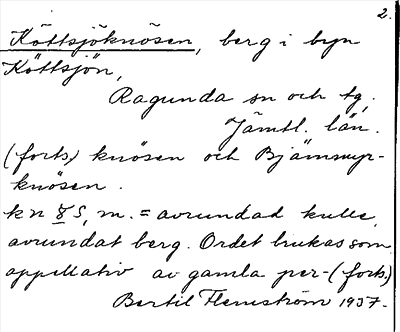 2.
Köttsjöknösen, berg i byn
Köttsjön,
Ragunda sn och tg,
Jämtl. län.
(forts) knösen och Bjämmyr-
knösen.
avrundad kulle,
avrundat berg. Ordet brukas som
appellativ av gamla per- (forts)
Bertil Flemström 1937.